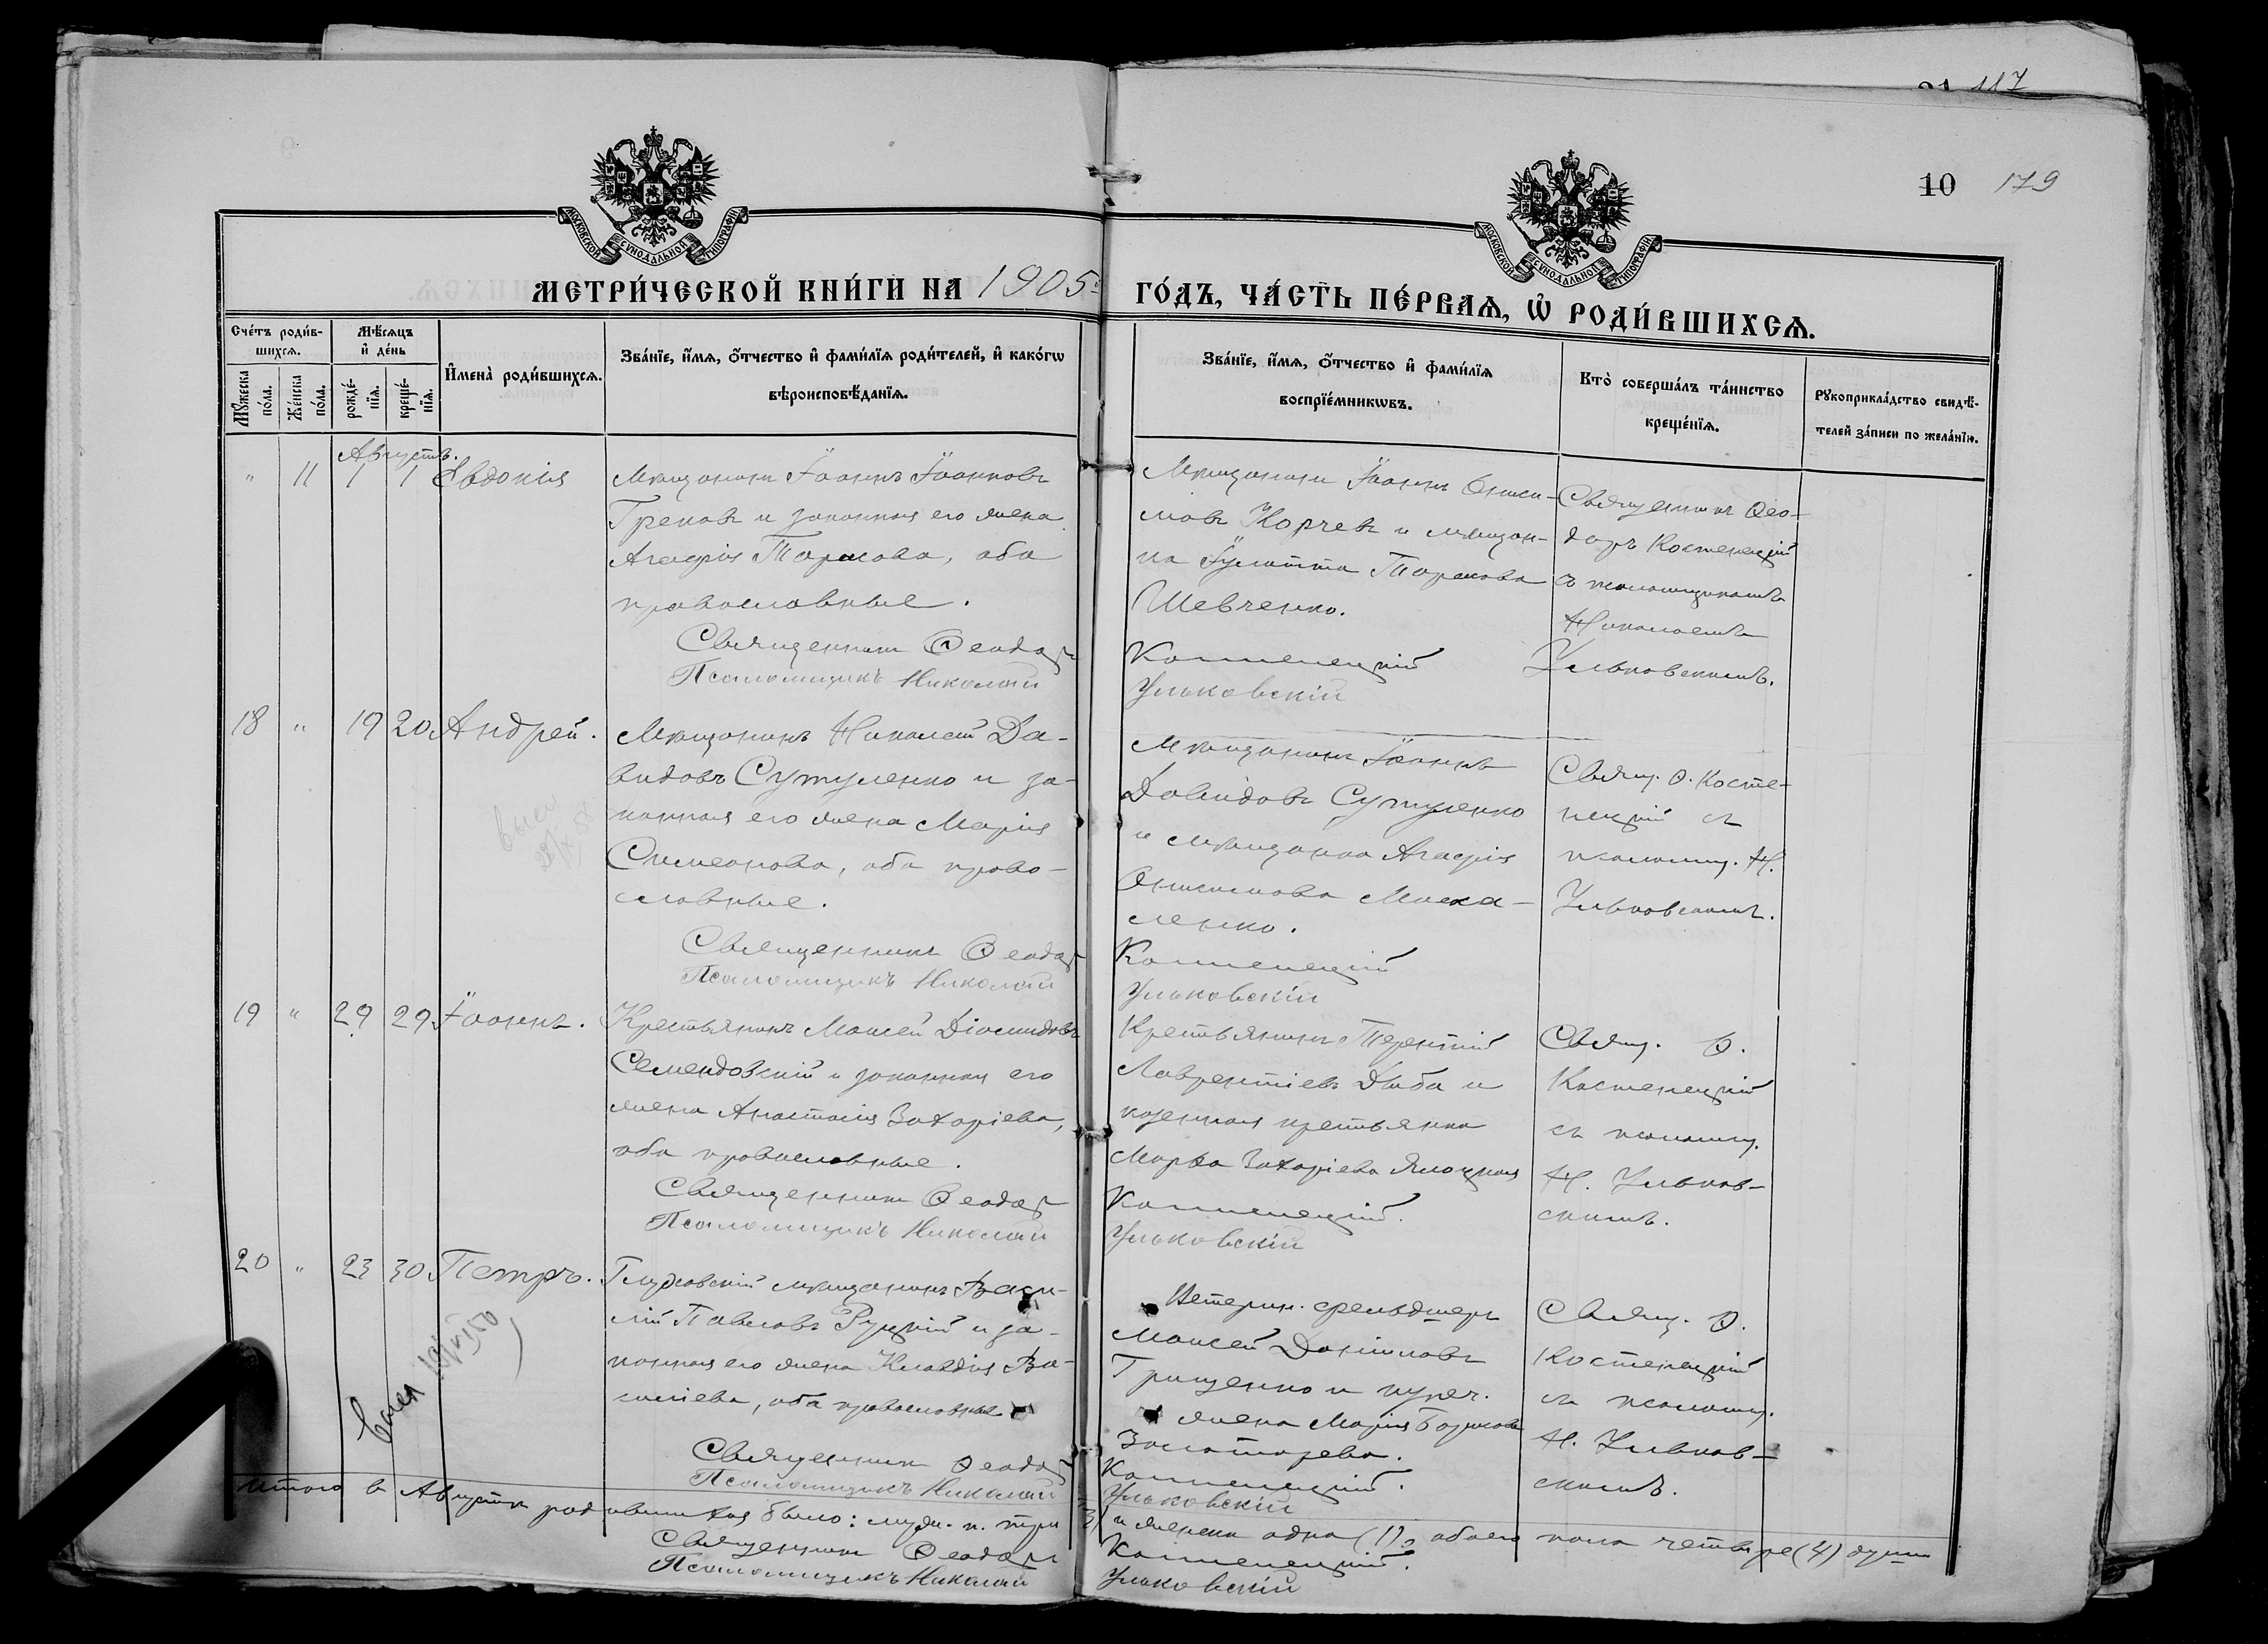 117
10 179
МОСКОВСКОЙ СѴНОДАЛЬНОЙ ТИПОГРАФІИ
МОСКОВСКОЙ СѴНОДАЛЬНОЙ ТИПОГРАФІИ
МЕТРИ́ЧЕСКОЙ КНИ́ГИ НА 1905
ГО́ДЪ, ЧА́СТЬ ПЕ́РВАѦ, Ѡ҆ РОДИ́ВШИХСѦ.
Сче́тъ роди́в-
шихсѧ.
Мꙋ́жеска
по́ла.
Же́нска
по́ла.
Мѣ́сѧцъ
и҆ де́нь
рожде́-
нїѧ.
креще́-
нїѧ.
И҆мена̀ роди́вшихсѧ.
Зва́нїе, и҆́мѧ, ѻ҆́тчество и҆ фами́лїѧ роди́телей, и҆ како́гѡ
вѣроисповѣ́данїѧ.
Зва́нїе, и҆́мѧ, ѻ҆́тчество и҆ фами́лїѧ
воспрїе́мникѡвъ.
Кто̀ соверша́лъ та́инство
креще́нїѧ.
Рꙋкоприкла́дство свидѣ́-
телей за́писи по жела́нїю.
Августъ.
" 11 1 1 Евдокія
Мѣщанинъ Іоаннъ Іоанновъ
Грековъ и законная его жена
Агафія Тарасова, оба
православные.
Священникъ Ѳеодоръ
Псаломщикъ Николай
Мѣщанинъ Іоаннъ Ониси-
мовъ Корчевъ и мѣщан-
ка Іулитта Тарасова
Шевченко.
Костенецкій
Ульковскій
Священникъ Ѳео-
доръ Костенецкій
съ псаломщикомъ
Николаемъ
Ульковскимъ.
18 " 19 20 Андрей.
Мѣщанинъ Николай Да-
видовъ Сутуленко и за-
конная его жена Марія
Симеонова, оба право-
славные.
Священникъ Ѳеодоръ
Псаломщикъ Николай
Мѣщанинъ Іоаннъ
Давидовъ Сутуленко
и мѣщанка Агафія
Онисимова Моска-
ленко.
Костенецкій
Ульковскій
Свящ. Ѳ. Косте-
нецкій съ
псаломщ. Н.
Ульковскимъ.
19 " 29 29 Іоаннъ.
Крестьянинъ Моисей Діомидовъ
Семендовскій и законная его
жена Анастасія Захаріева,
оба православные.
Священникъ Ѳеодоръ
Псаломщикъ Николай
Крестьянинъ Терентій
Лаврентіевъ Дыба и
казенная крестьянка
Марѳа Захаріева
Костенецкій.
Ульковскій
Свящ. Ѳ.
Костенецкій
съ псаломщ.
Н. Ульков-
скимъ.
20 " 23 30 Петръ.
Глуховскій мѣщанинъ Васи-
лій Павловъ Руцкій и за-
конная его жена Клавдія Ва-
силіева, оба православные
Священникъ Ѳеодоръ
Псаломщикъ Николай
Ветерин. фельдшеръ
Моисей Даніиловъ
Грищенко и купеч.
жена Марія Борисова
Золотарева.
Костенецкій.
Ульковскій
Свящ. Ѳ.
Костенецкій
съ псаломщ.
Н. Ульков-
скимъ.
Итого въ Августѣ родившихся было: муж. п. три (3)
и женска одна (1), обоего пола четыре (4) души
Священникъ Ѳеодоръ
Костенецкій.
Псаломщикъ Николай
Ульковскій